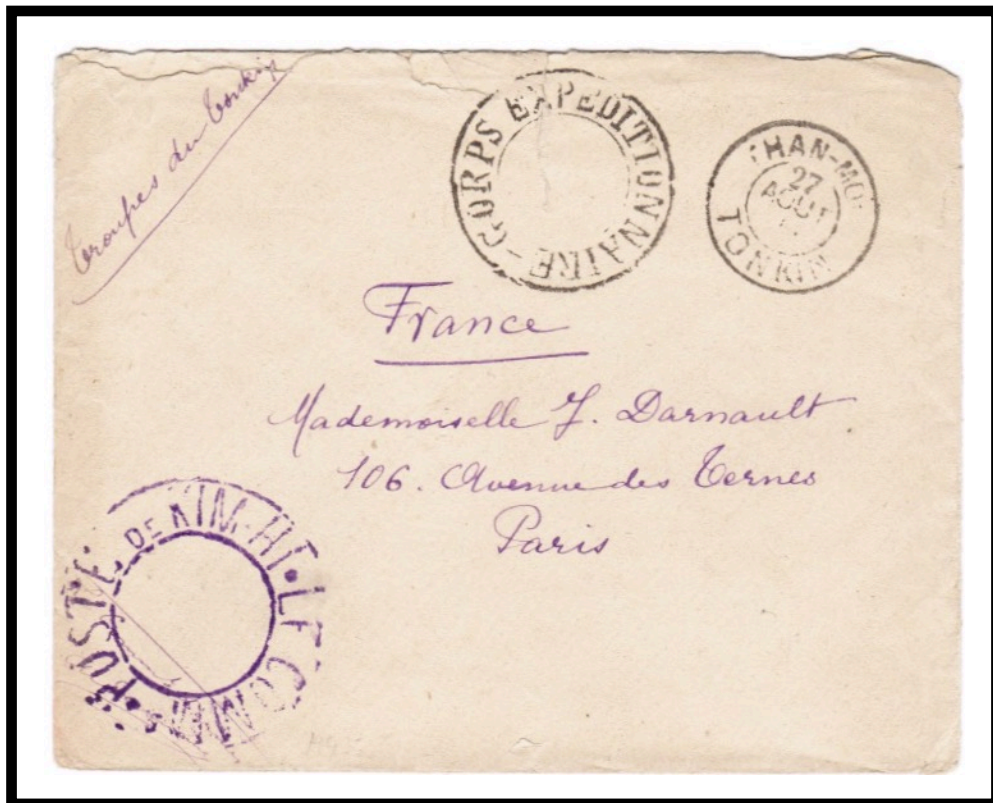 Troupes du Tonkin
CORPS EXPEDITIONNAIRE
THAN-MOI
27
AOUT
TONKIN
France
Mademoiselle J. Darnault
106. Avenue des Ternes
Paris
POSTE DE KIM-HI • LE COMM